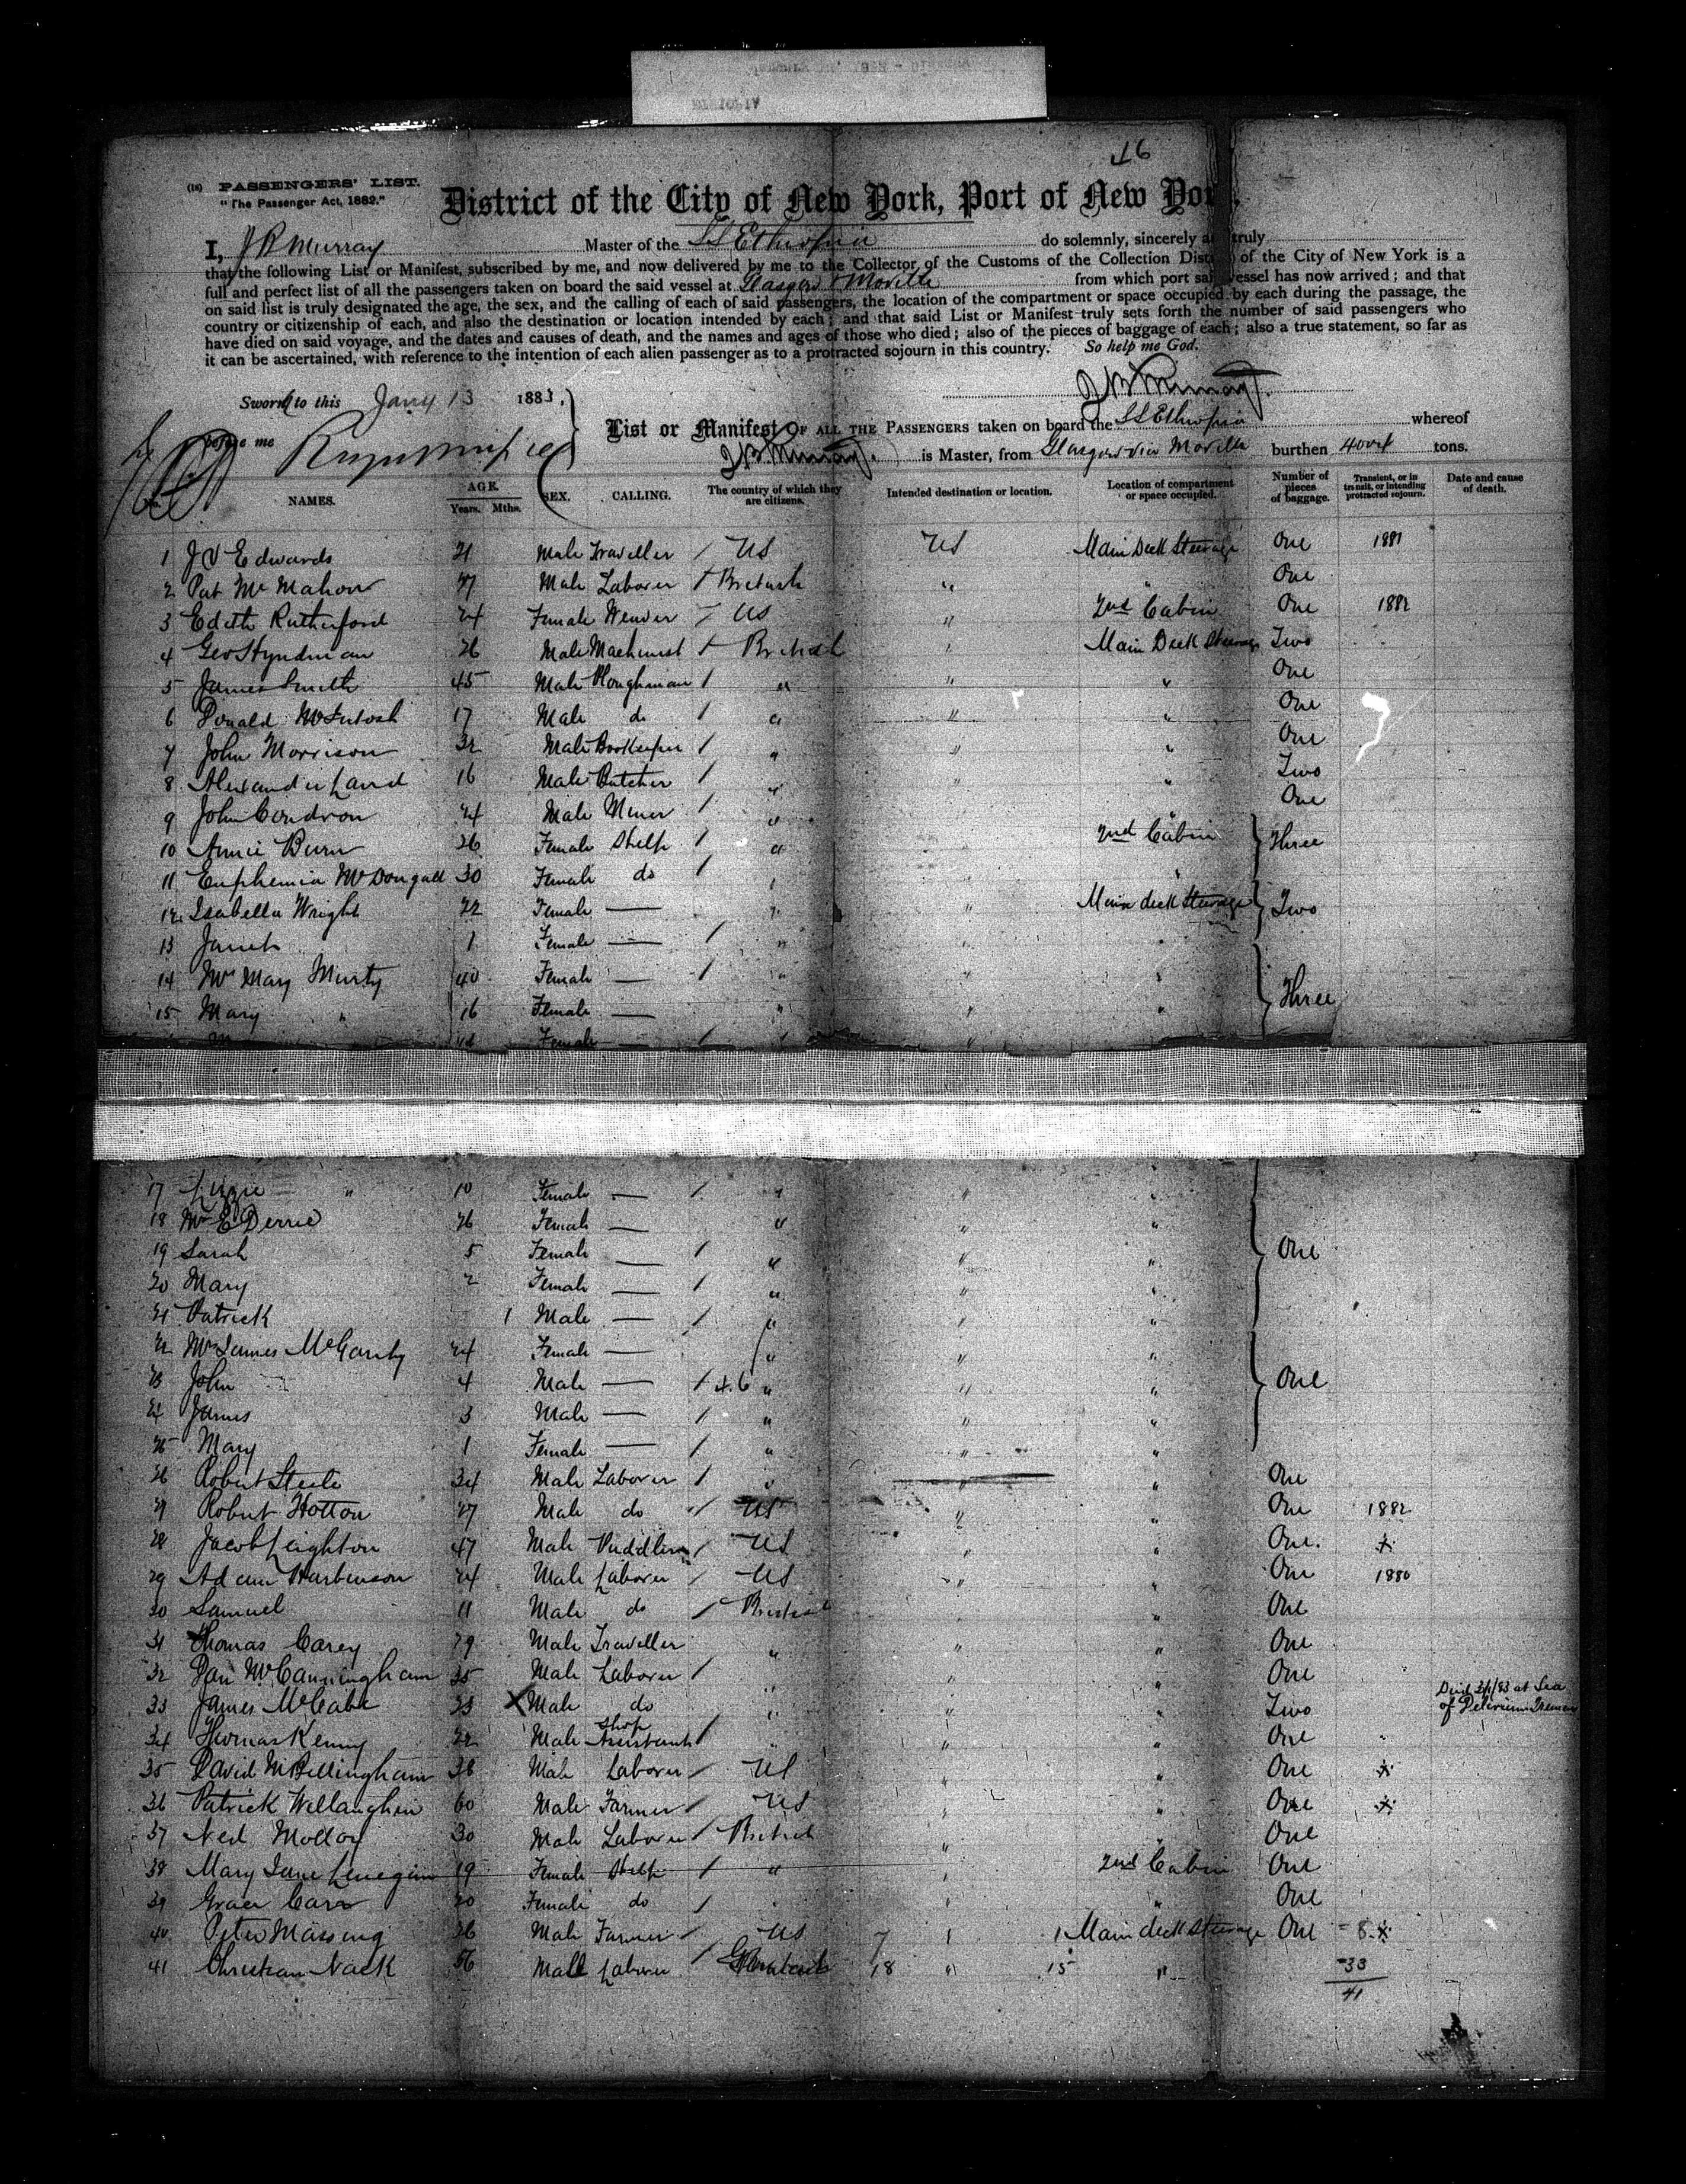 46
(18) PASSENGERS' LIST.
"The Passenger Act, 1882."
District of the City of New York, Port of New York.
I, J R Murray Master of the SS Ethiopia do solemnly, sincerely and truly
that the following List or Manifest, subscribed by me, and now delivered by me to the Collector of the Customs of the Collection District of the City of New York is a
full and perfect list of all the passengers taken on board the said vessel at Glasgow & Moville from which port said vessel has now arrived; and that
on said list is truly designated the age, the sex, and the calling of each of said passengers, the location of the compartment or space occupied by each during the passage, the
country or citizenship of each, and also the destination or location intended by each; and that said List or Manifest truly sets forth the number of said passengers who
have died on said voyage, and the dates and causes of death, and the names and ages of those who died; also of the pieces of baggage of each; also a true statement, so far as
it can be ascertained, with reference to the intention of each alien passenger as to a protracted sojourn in this country. So help me God.
Sworn to this Jany 13 1883,
before me
List or Manifest OF ALL THE PASSENGERS taken on board the SS Ethiopia whereof
is Master, from Glasgow via Moville burthen 4004 tons.
NAMES. AGE. Years. Mths. SEX. CALLING. The country of which they are citizens. Intended destination or location. Location of compartment or space occupied. Number of pieces of baggage. Transient, or in transit, or intending protracted sojourn. Date and cause of death.
1 J V Edwards 21 Male Traveller / US US Main Deck Steerage One 1881
2 Pat McMahon 27 Male Laborer British " " One
3 Edith Rutherford 24 Female Weaver US " 2nd Cabin One 1882
4 Geo Hyndman 26 Male Machinist British " Main Deck Steerage Two
5 James Smith 45 Male Ploughman / " " " One
6 Donald McIntosh 17 Male do / " " " One
7 John Morrison 32 Male Bookeeper / " " " One
8 Alexander Laird 16 Male Butcher / " " " Two
9 John Condron 24 Male Miner / " " " One
10 Annie Burn 26 Female SHelp / " 2nd Cabin Three
11 Euphemia McDougall 30 Female do / " "
12 Isabella Wright 22 Female — " " Main deck Steerage Two
13 Janet 1 Female — / " " "
14 Mrs Mary Murty 40 Female — / " " " Three
15 Mary " 16 Female — " " "
Female — /
17 Lizzie " 10 Female — / " " "
18 Mrs E Derrie 26 Female — " " " One
19 Sarah 5 Female — / " " "
20 Mary 2 Female — / " " "
21 Patrick 1 Male — / " " "
22 Mrs James McGarty 24 Female — / " " " One
23 John 4 Male — / 46 " " "
24 James 3 Male — / " " "
25 Mary 1 Female — / " " "
26 Robert Steele 34 Male Laborer / " " One
27 Robert Hotton 27 Male do / US " " One 1882
28 Jacob Leighton 47 Male Puddler / US " " One
29 Adam Harbinson 24 Male Laborer / US " " One 1880
30 Samuel 11 Male do / British " One
31 Thomas Carey 29 Male Traveller " " " One
32 Dan McCanningham 35 Male Laborer / " " One
33 James McCabe 23 X Male do " " Two Died 3/1/83 at Sea of Delirium Tremens
34 Thomas Kenny 22 Male Shop Assistant / " " " One
35 David McBellingham 38 Male Laborer / US " " One
36 Patrick 60 Male Farmer / US " " One
37 Ned Molloy 30 Male Laborer / British " " One
38 Mary Jane 19 Female SHelp / " 2nd Cabin One
39 Grace Carr 20 Female do / " " One
40 Peter Massing 26 Male Farmer / US 7 " 1 Main deck Steerage One 8
41 Christian Nack 56 Male Laborer / 18 " 15 " 33
41